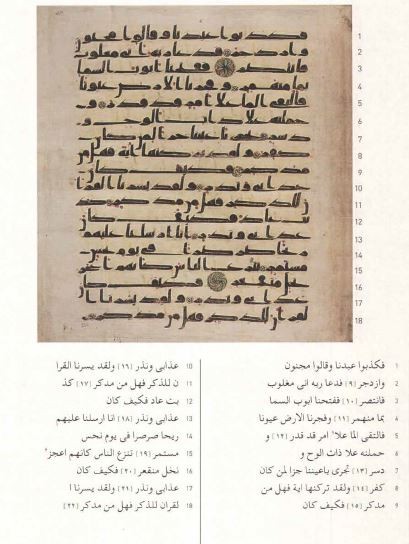 1
2
3
4
5
6
7
8
9
10
11
12
13
14
15
16
17
18
1 فكذبوا عبدنا وقالوا مجنون
2 وازدجر [٩] فدعا ربه انى مغلوب
3 فانتصر [١٠] ففتحنا ابوب السما
4 بما منهمر [١١] وفجرنا الارض عيونا
5 فالتقى الما علا امر قد قدر [١٢] و
6 حملنه علا ذات الوح و
7 دسر [١٣] تجرى باعيننا جزا لمن كان
8 كفر [١٤] ولقد تركنها اية فهل من
9 مدكر [١٥] فكيف كان
10 عذابى ونذر [١٦] ولقد يسرنا القرا
11 ن للذكر فهل من مدكر [١٧] كذ
12 بت عاد فكيف كان
13 عذابى ونذر [١٨] انا ارسلنا عليهم
14 ريحا صرصرا فى يوم نحس
15 مستمر [١٩] تنزع الناس كانهم اعجز
16 نخل منقعر [٢٠] فكيف كان
17 عذابى ونذر [٢١] ولقد يسرنا ا
18 لقران للذكر فهل من مدكر [٢٢]